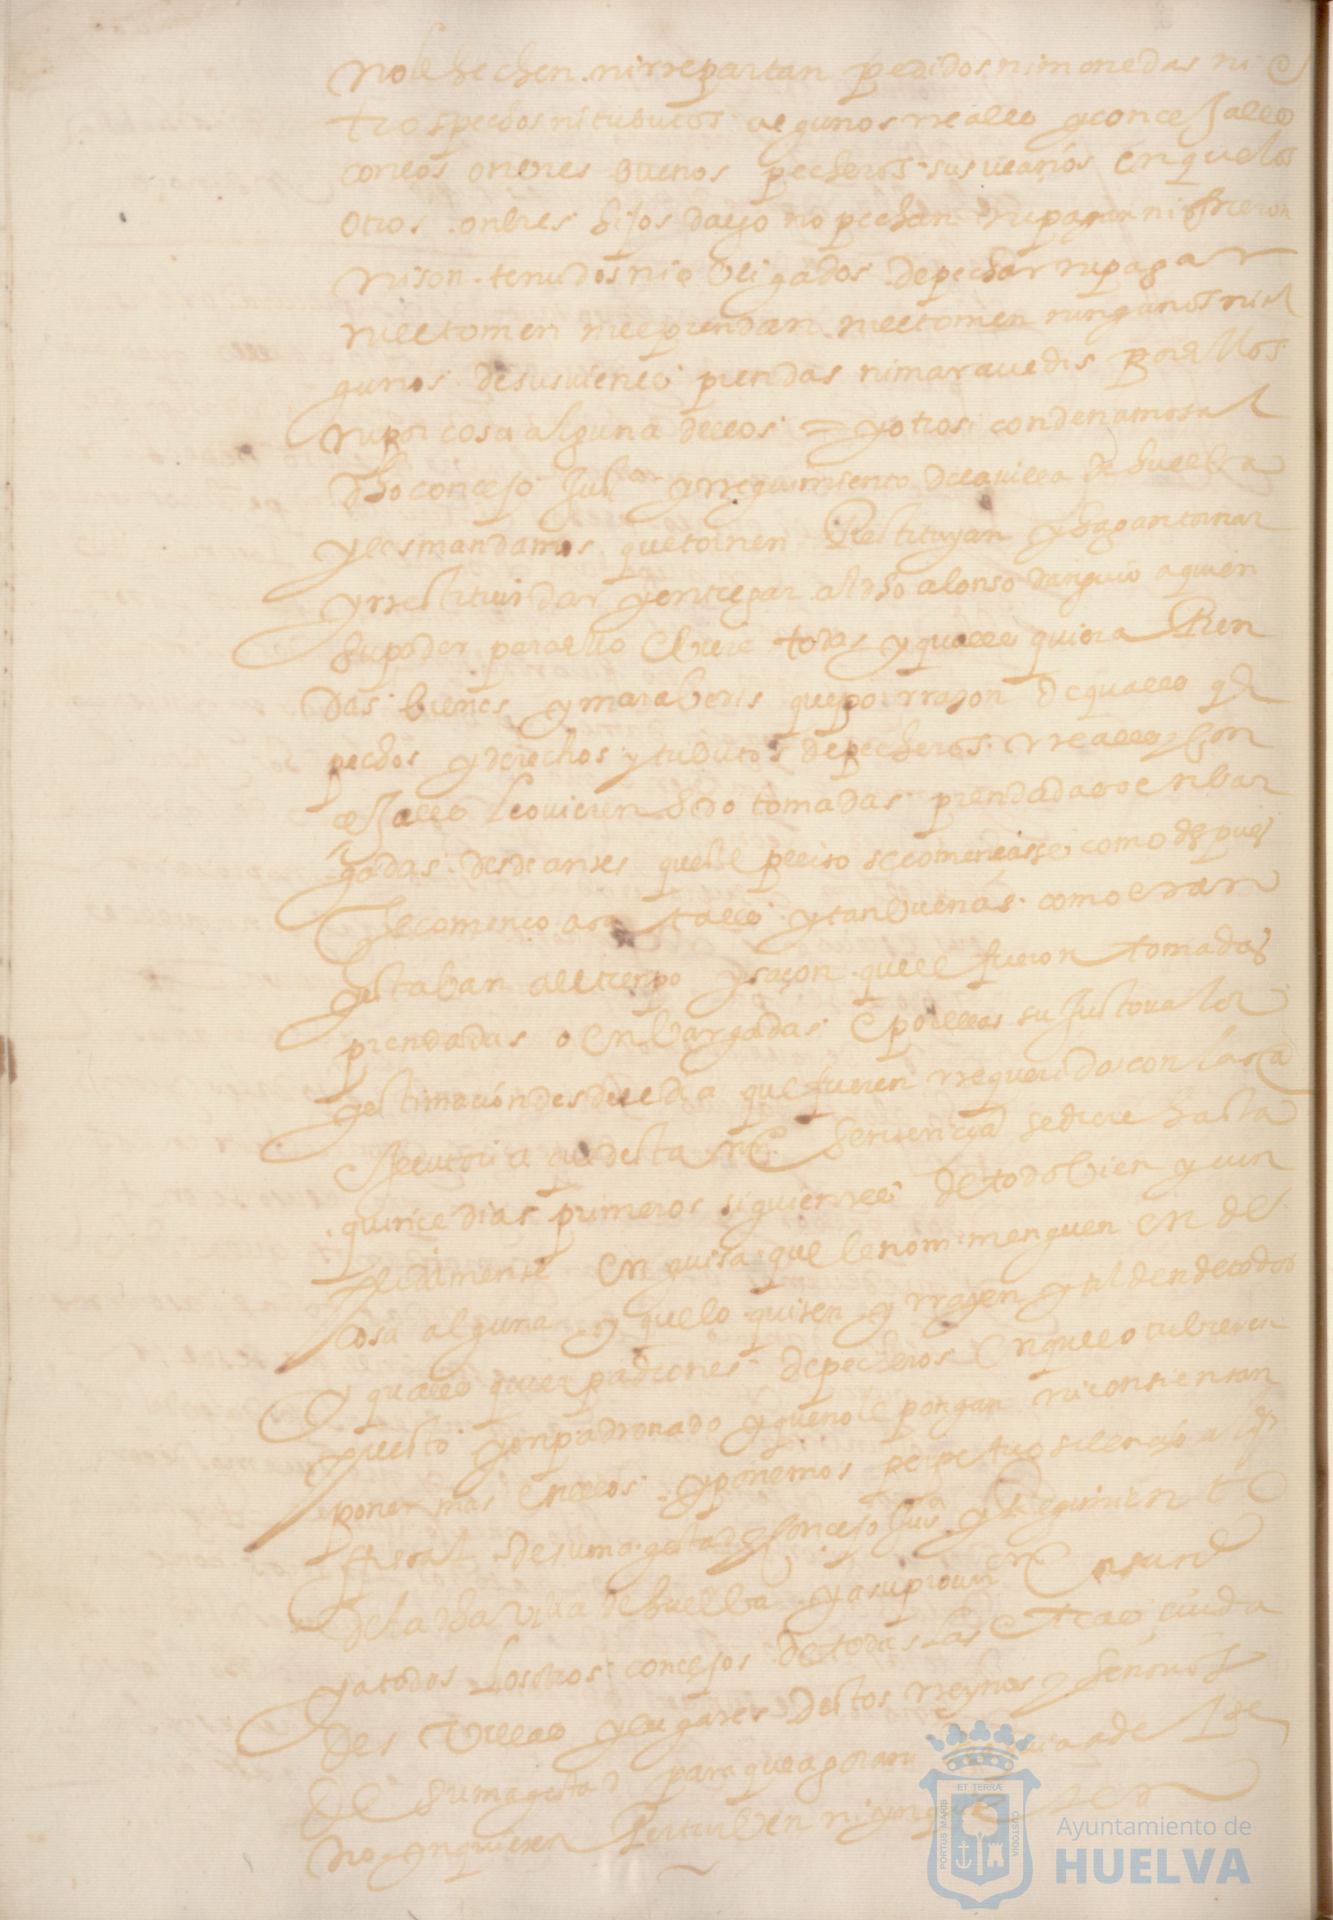 no le hechen ni rrepartan pedidos ni monedas ni o
tros pechos ni tributos algunos rreales y concejales
con los onbres buenos pecheros sus vecinos en que los
otros onbres hijos dalgo no pechan ni pagan ni fueron
ni son tenudos ni obligados de pechar ni pagar
ni le tomen ni le prendan ni le tomen ningunos ni al
gunos de sus vienes prendas ni maravedis por ellos
ni por cosa alguna dellos = y otrosi condenamos al
dho concejo Justª y rregimiento de la villa de huelba
y les mandamos que tornen Restituyan y hagan tornar
y rrestituir dar y entregar al dho alonso a quien
su poder para ello obiere todas y quales quiera Pren
das bienes y maraberis que por rrazon de quales qr
pechos y derechos y tributos de pecheros rreales y con
cejales le ovieren sido tomadas prendadas o enbar
gadas desde antes quel pleito se comencasse como despues
que se començo a tales y tan buenas como eran
y estaban al tienpo y saçon que le fueron tomadas
prendadas o enbargadas e por ellas su justo valor
y estimacion desde el dia que fueren rrequeridos con la ca
executoria que desta nrª sentencia se diere hasta
quince dias primeros siguientes de todo bien y cun
plidamente en guisa que le nom menguen en de
cosa alguna y que lo quiten y rrayen y tilden de todos
y quales quier padrones de pecheros en que lo tubieren
puesto y enpadronado y que no le pongan ni consientan
poner mas en ellos y ponemos perpetuo silencio al dho
fiscal de su magestad y concejo Justª y Regimiento
de la dha villa de huelba y a su procurª en su nre
y a todos los otros concejos de todas las otras ciuda
des villas y lugares destos rreynos y señorios
de su magestad para que agora ni
no ynquieten Perturben ni
ET TERRÆ
PORTUS MARIS
CUSTODIA
Ayuntamiento de
HUELVA